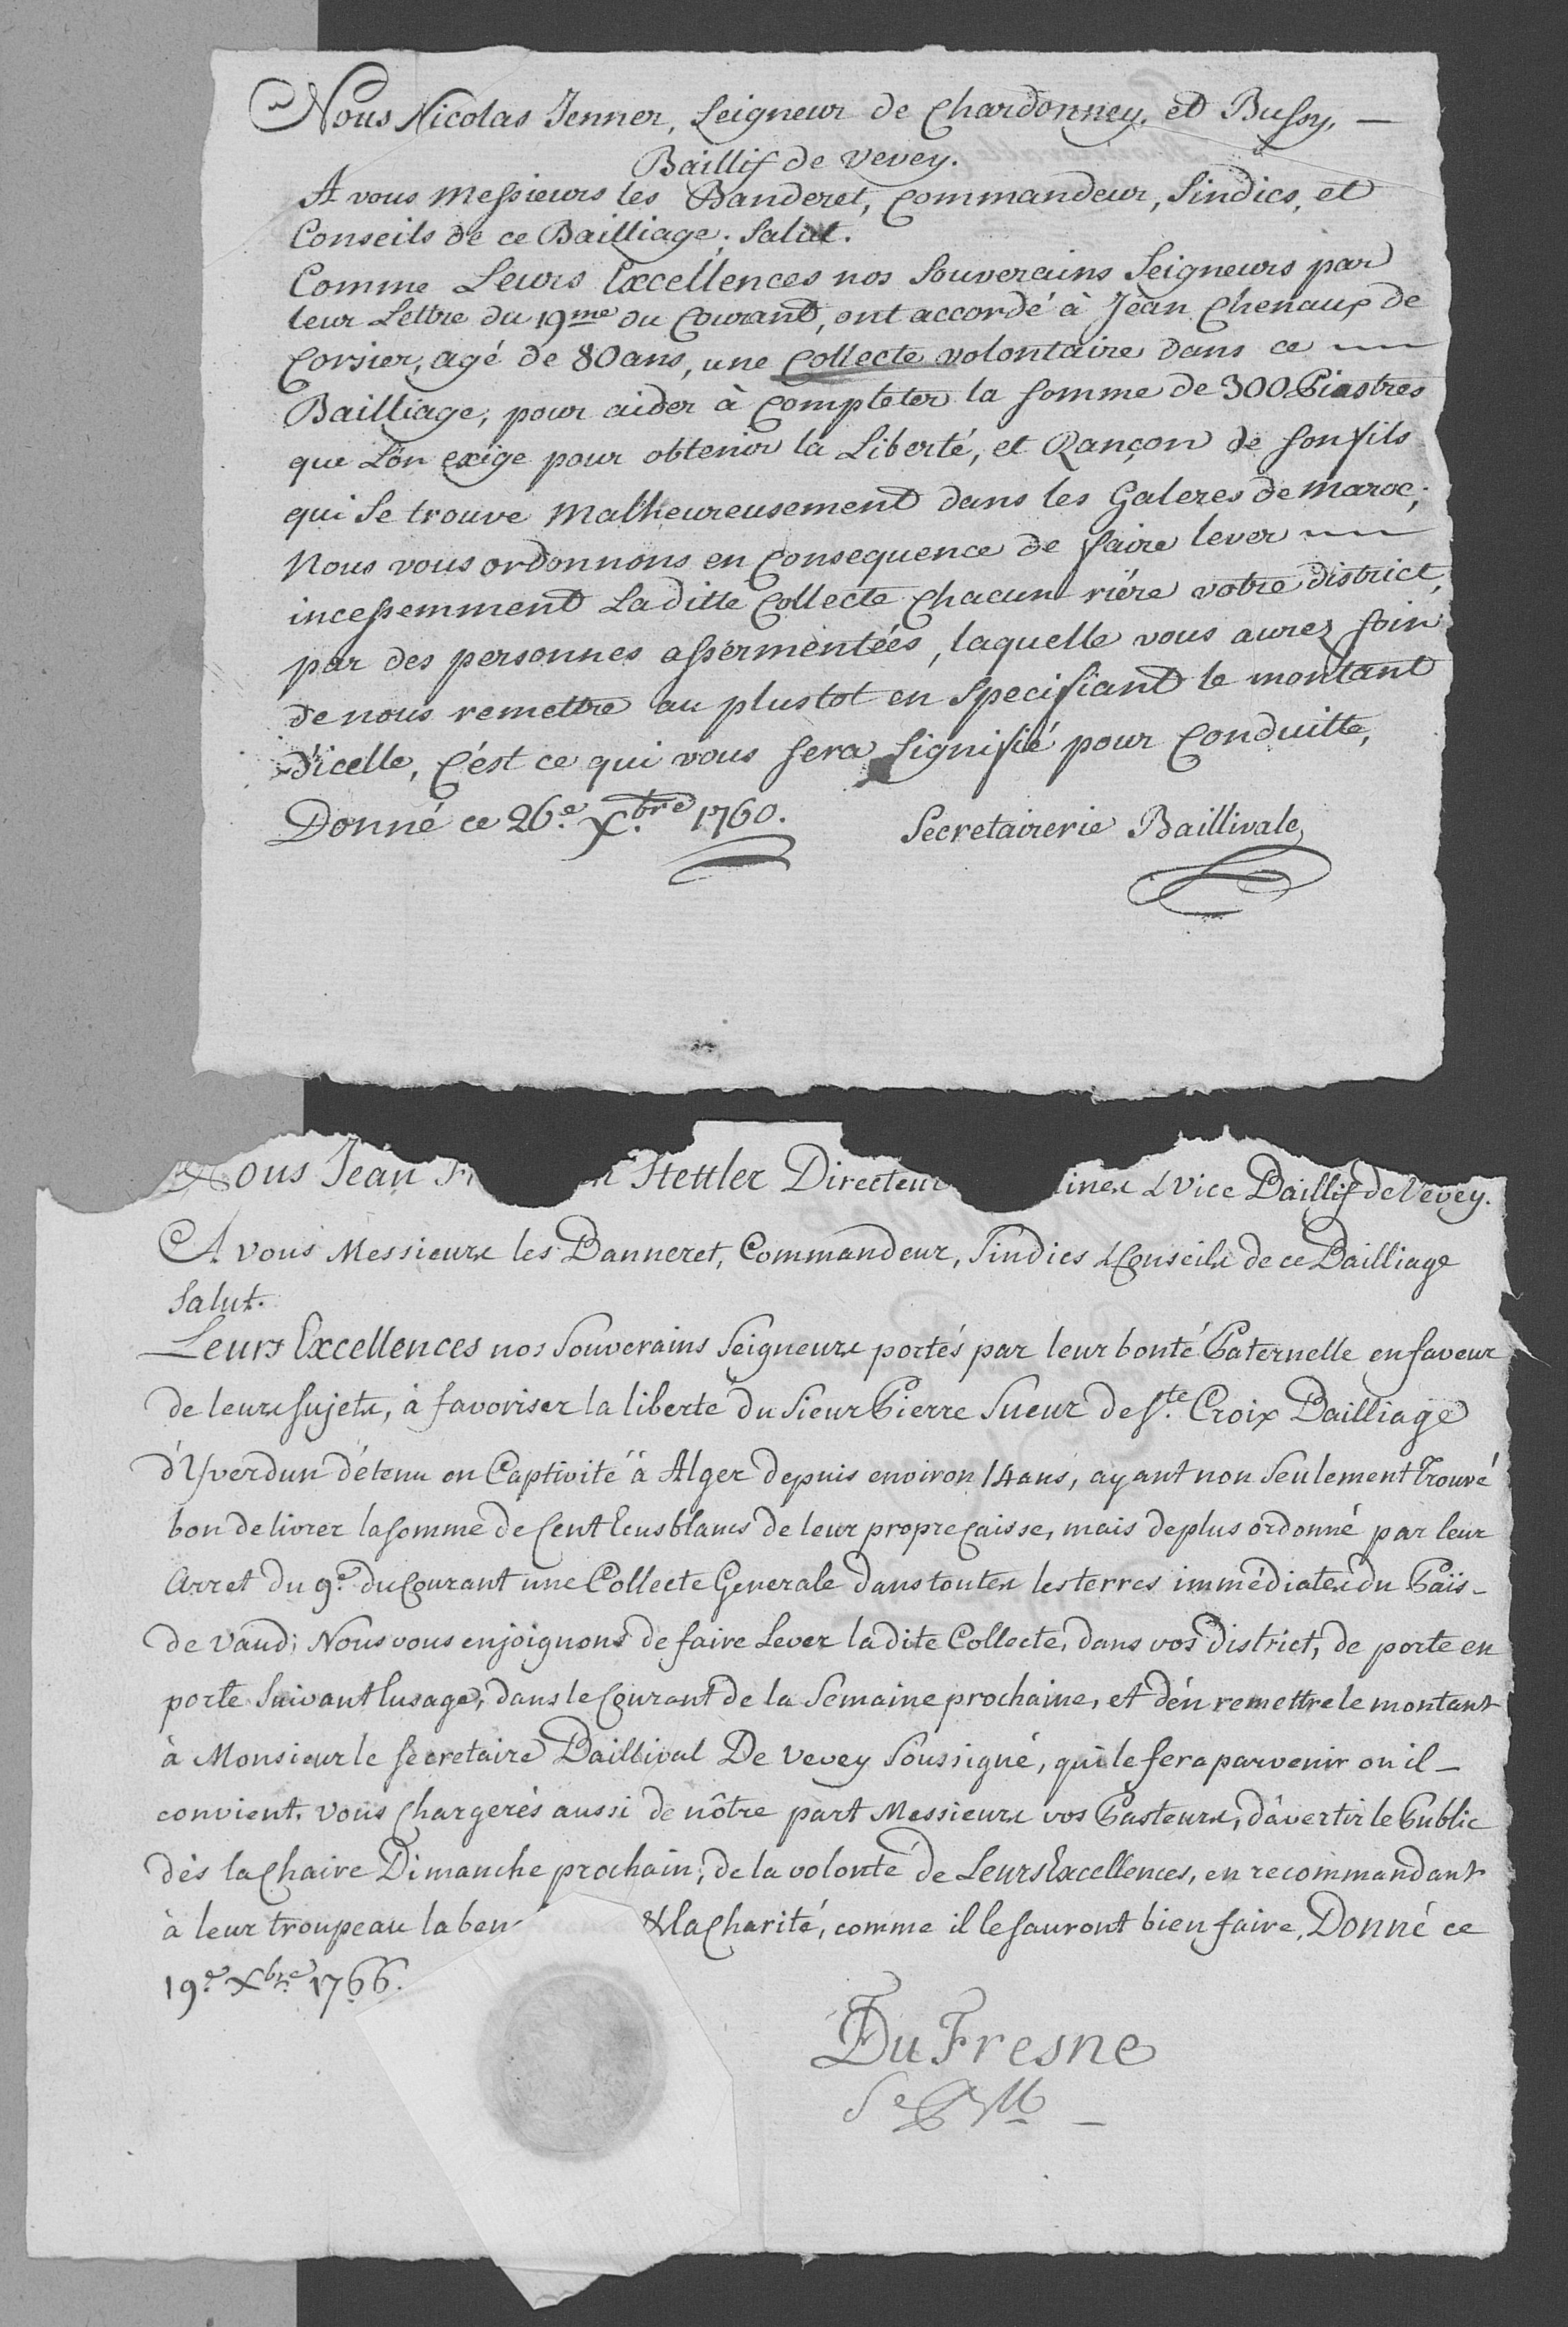 Nous Nicolas Jenner, Seigneur de Chardonney, et Bussy,
Baillif de Vevey.
A vous Messieurs les Banderet, Commandeur, Sindics, et
Conseils de ce Bailliage; Salut.
Comme Leurs Excellences nos Souverains Seigneurs par
leur Lettre du 19me du Courant, ont accordé à Jean Chenaux de
Corsier, agé de 80 ans, une Collecte volontaire dans ce
Bailliage, pour aider à Completer la somme de 300 Piastres
que L'on exige pour obtenir la Liberté, et Rançon de son fils
qui Se trouve Malheureusement dans les Galeres de Maroc;
Nous vous ordonnons en Consequence de faire lever
incessemment La ditte Collecte Chacun riére votre district,
par des personnes assermentées, laquelle vous aurez soin
de nous remettre au plustot en Specifiant le montant
d'icelle, C'est ce qui vous sera Signifié pour Conduitte,
Donné ce 26e. Xbre 1760.
Secretairerie Baillivale
Nous Jean Stettler Directeur & Vice Baillif de Vevey.
A vous Messieurs les Banneret, Commandeur, Sindics & Conseils de ce Bailliage
Salut.
Leurs Excellences nos Souverains Seigneurs portés par leur bonté Paternelle en faveur
de leurs sujets, à favoriser la liberté du Sieur Pierre Sueur de Ste. Croix Bailliage
d'Yverdun détenu en Captivité à Alger depuis environ 14 ans, ayant non Seulement Trouvé
bon de livrer la somme de Cent Ecus blancs de leur propre Caisse, mais de plus ordonné par leur
Arret du 9e. du Courant une Collecte Generale dans toutes les terres immédiates du Païs-
de Vaud; Nous vous enjoignons de faire Lever la dite Collecte, dans vos District, de porte en
porte Suivant lusage, dans le Courant de la Semaine prochaine, et d'en remettre le montant
à Monsieur le Secretaire Baillival De Vevey Soussigné, qui le fera parvenir ou il
convient, vous Chargerés aussi de nôtre part Messieurs vos Pasteurs, d'avertir le Public
dès la Chaire Dimanche prochain, de la volonté de Leurs Excellences, en recommandant
à leur troupeau la ben & la Charité, comme il le sauront bien faire, Donné ce
19e. Xbre. 1766.
Du Fresne